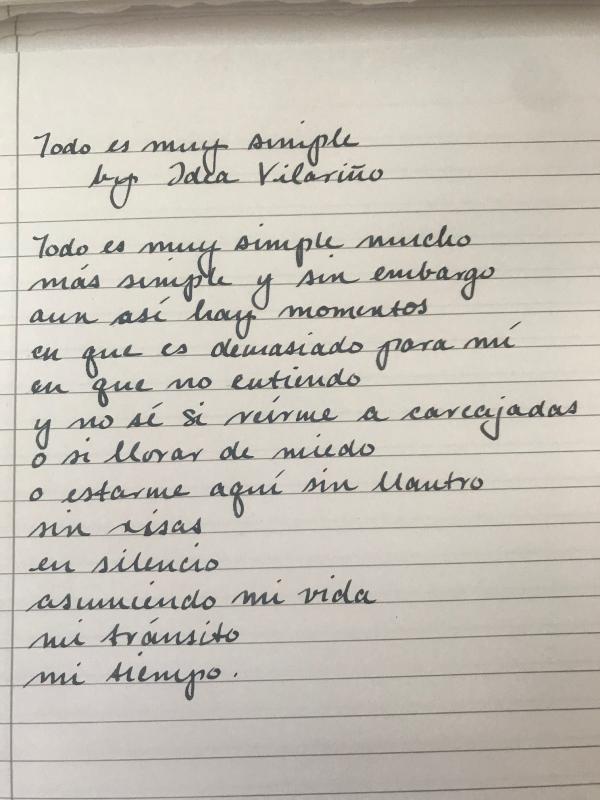 Todo es muy simple
by Idea Vilariño
Todo es muy simple mucho
más simple y sin embargo
aun así hay momentos
en que es demasiado para mí
en que no entiendo
y no sé si reírme a carcajadas
o si llorar de miedo
o estarme aquí sin llantro
sin risas
en silencio
asumiendo mi vida
mi tránsito
mi tiempo.